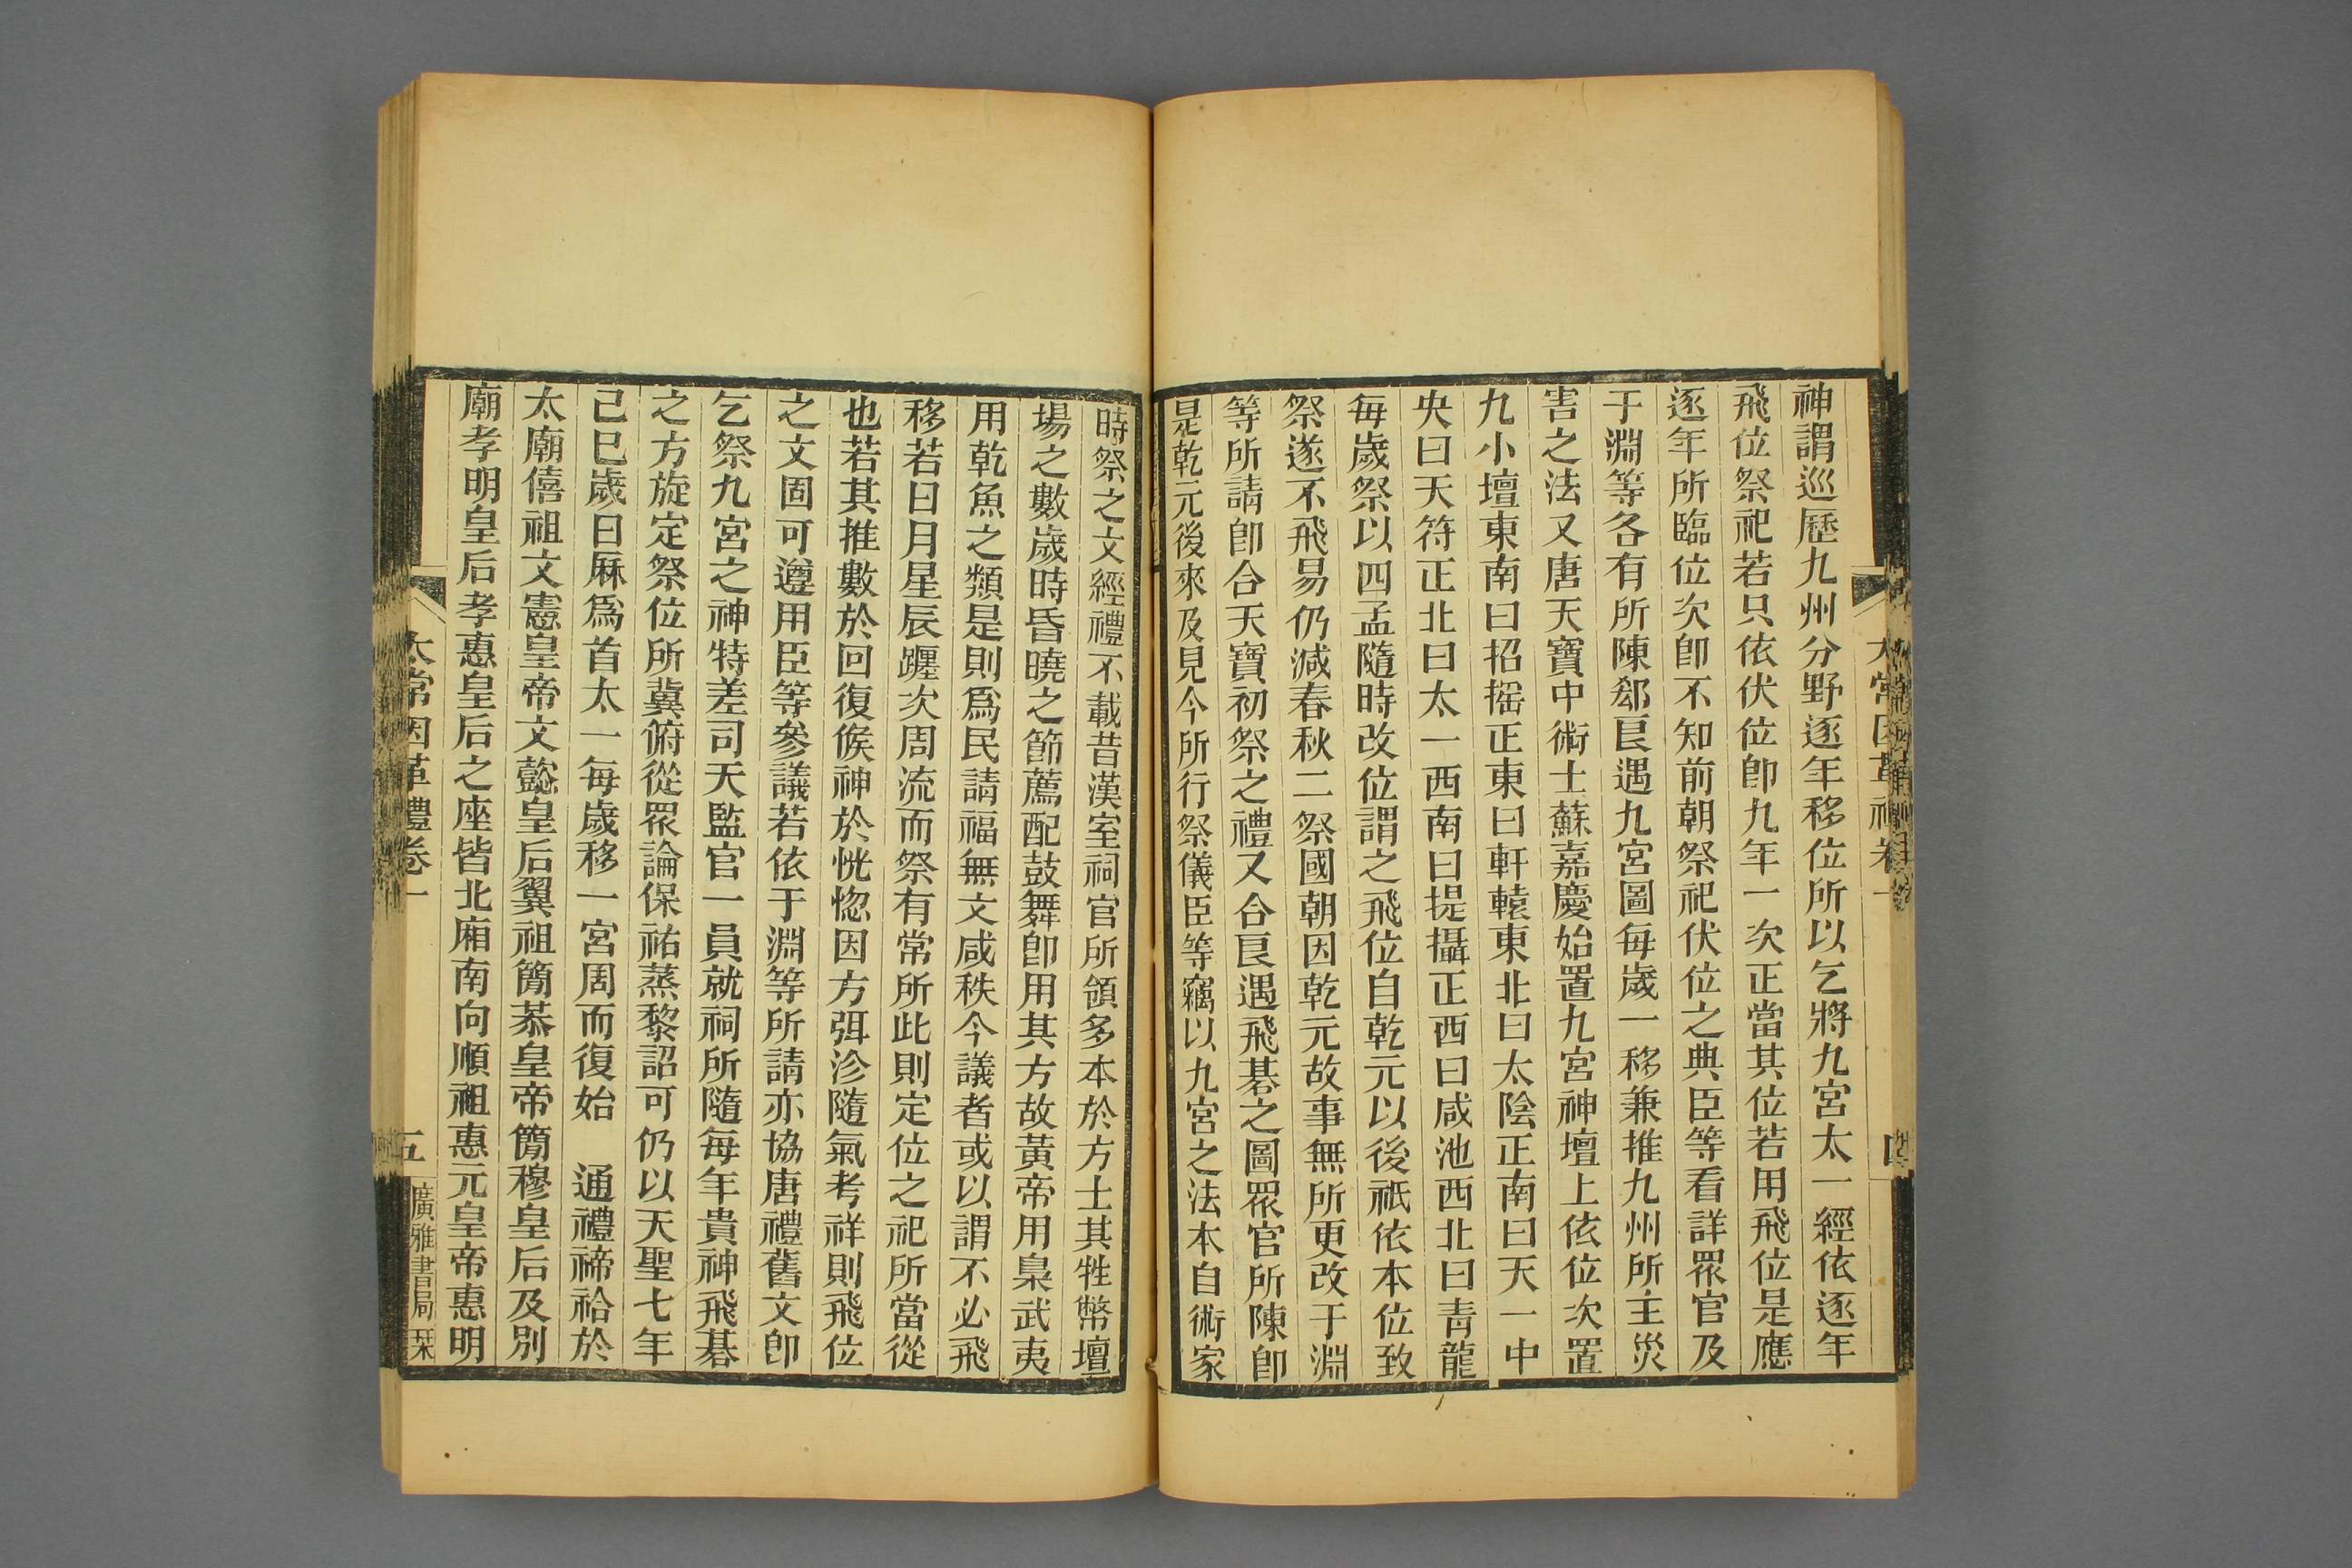 神謂巡歷九州分野逐年移位所以乞將九宮太一經依逐年
飛位祭祀若只依伏位卽九年一次正當其位若用飛位是應
逐年所臨位次卽不知前朝祭祀伏位之典臣等看詳眾官及
于淵等各有所陳郄良遇九宮圖每歲一移兼推九州所主災
害之法又唐天寶中術士蘇嘉慶始置九宮神壇上依位次置
九小壇東南曰招搖正東曰軒轅東北曰太陰正南曰天一中
央曰天符正北曰太一西南曰提攝正西曰咸池西北曰青龍
每歲祭以四孟隨時改位謂之飛位自乾元以後祇依本位致
祭遂不飛易仍減春秋二祭國朝因乾元故事無所更改于淵
等所請卽合天寶初祭之禮又合良遇飛碁之圖眾官所陳卽
是乾元後來及見今所行祭儀臣等竊以九宮之法本自術家
時祭之文經禮不載昔漢室祠官所領多本於方士其牲幣壇
場之數歲時昏曉之節薦配鼓舞卽用其方故黃帝用梟武夷
用乾魚之類是則爲民請福無文咸秩今議者或以謂不必飛
移若日月星辰躔次周流而祭有常所此則定位之祀所當從
也若其推數於回復候神於恍惚因方弭沴隨氣考祥則飛位
之文固可遵用臣等參議若依于淵等所請亦協唐禮舊文卽
乞祭九宮之神特差司天監官一員就祠所隨每年貴神飛碁
之方旋定祭位所冀俯從眾論保祐蒸黎詔可仍以天聖七年
己巳歲日厤爲首太一每歲移一宮周而復始　通禮禘祫於
太廟僖祖文憲皇帝文懿皇后翼祖簡恭皇帝簡穆皇后及別
廟孝明皇后孝惠皇后之座皆北廂南向順祖惠元皇帝惠明
太常因革禮卷一
五
廣雅書局栞